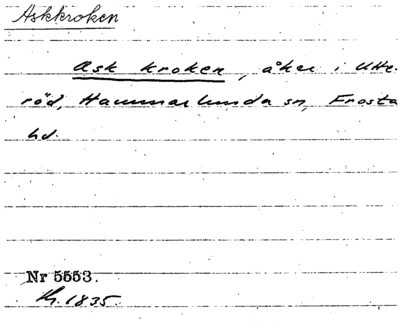 Askkroken
Ask kroken, åker i Utte-
röd, Hammarlunda sn, Frosta
hd.
Nr 5553.
Kr. 1835.